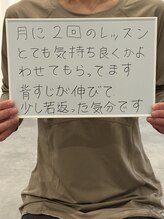 月に2回のレッスン
とても気持ち良くかよ
わせてもらってます
背すじが伸びて
少し若返った気分です